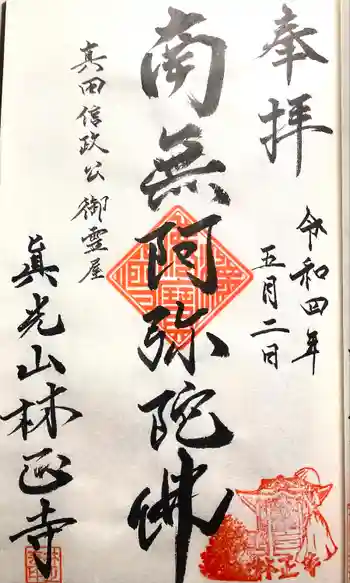 奉拝
令和四年
五月二日
南無阿弥陀佛
真田信政公御霊屋
眞光山林正寺
林正寺